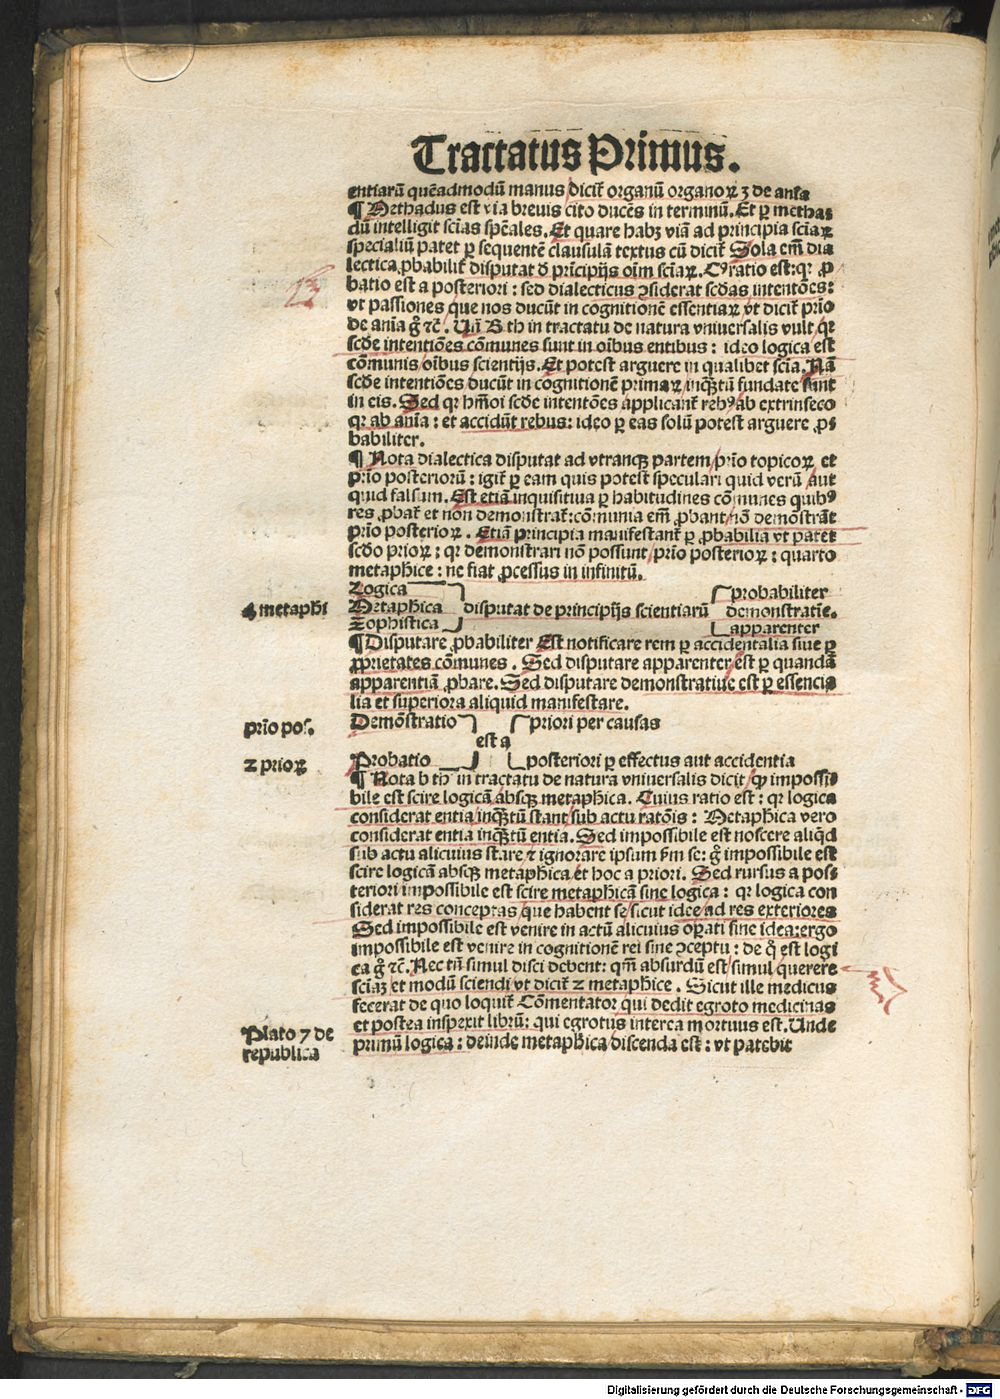 Tractatus Primus.
entiarū quēadmodū manus dicit̄ organū organoꝝ 3 de aīa
¶ Methadus est via breuis cito ducēs in terminū. Et ꝑ metha⸗
dū intelligit sc̄ias spēales. Et quare habꝫ viā ad principia sciaꝝ
specialiū patet ꝑ sequentē clausulā textus cū dicit̄ Sola em̄ dia
lectica ꝓbabilit̄ disputat d̄ prīcipijs oīm sciaꝝ. Cꝰ ratio est: qꝛ ꝓ
batio est a posteriori : sed dialecticus ꝯsiderat scd̄as intentōes:
vt passiones que nos ducūt in cognitionē essentiaꝝ vt dicit̄ prīo
de anīa g̊ ⁊c̄. Un̄ B th in tractatu de natura vniuersalis vult, qꝛ
scd̄e intentiōes cōmunes sunt in oībus entibus : ideo logica est
cōmunis oībus scientijs. Et potest arguere in qualibet scīa. Nā
scd̄e intentiōes ducūt in cognitionē primaꝝ inqꝫtū fundate sunt
in eis. Sed qꝛ hm̄oi scd̄e intentōes applicant̄ rebꝰ ab extrinseco
qꝛ ab anīa : et accidūt rebus: ideo ꝑ eas solū potest arguere ꝓ⸗
babiliter.
¶ Nota dialectica disputat ad vtranqꝫ partem prīo topicoꝝ et
prīo posteriorū : igit̄ ꝑ eam quis potest speculari quid verū aut
quid falsum. Est etiā inquisitiua ꝑ habitudines cōmunes quibꝰ
res ꝓbat̄ et non demonstrat̄: cōmunia em̄ ꝓbant nō demōstrāt
prīo posterioꝝ . Etiā principia manifestant̄ ꝑ ꝓbabilia vt patet
scd̄o prioꝝ : qꝛ demonstrari nō possunt prīo posterioꝝ : quarto
metaph̄ice : ne fiat ꝓcessus in infinitū.
Logica probabiliter
4 metaph̄i Metaph̄ica disputat de principijs scientiarū demonstratīe.
Zophistica apparenter
¶ Disputare ꝓbabiliter Est notificare rem ꝑ accidentalia siue ꝑ
ꝓprietates cōmunes . Sed disputare apparenter est ꝑ quandā
apparentiā ꝓbare. Sed disputare demonstratiue est ꝑ essencia
lia et superiora aliquid manifestare.
prīo pos. Demōstratio priori per causas
est a
2 prioꝝ Probatio posteriori ꝑ effectus aut accidentia
¶ Nota b th in tractatu de natura vniuersalis dicit ꝙ impossi⸗
bile est scire logicā absqꝫ metaph̄ica. Cuius ratio est : qꝛ logica
considerat entia inqꝫtū stant sub actu ratōis : Metaph̄ica vero
considerat entia inqꝫtū entia. Sed impossibile est noscere aliqd̄
sub actu alicuius stare ⁊ ignorare ipsum fm̄ se: g̊ impossibile est
scire logicā absqꝫ metaph̄ica et hoc a priori. Sed rursus a pos⸗
teriori impossibile est scire metaph̄icā sine logica : qꝛ logica con
siderat res conceptas que habent se sicut idee ad res exteriores
Sed impossibile est venire in actū alicuius oꝑati sine idea: ergo
impossibile est venire in cognitionē rei sine ꝯceptu : de q̊ est logi
ca g̊ ⁊c̄. Nec tn̄ simul disci debent: qm̄ absurdū est simul querere
sciaꝫ et modū sciendi vt dicit̄ 2 metaph̄ice . Sicut ille medicus
fecerat de quo loquit̄ Cōmentator qui dedit egroto medicinas
et postea inspexit librū: qui egrotus interea mortuus est. Unde
Plato 7 de primū logica : deinde metaph̄ica discenda est : vt patebit
republica
Digitalisierung gefördert durch die Deutsche Forschungsgemeinschaft - DFG